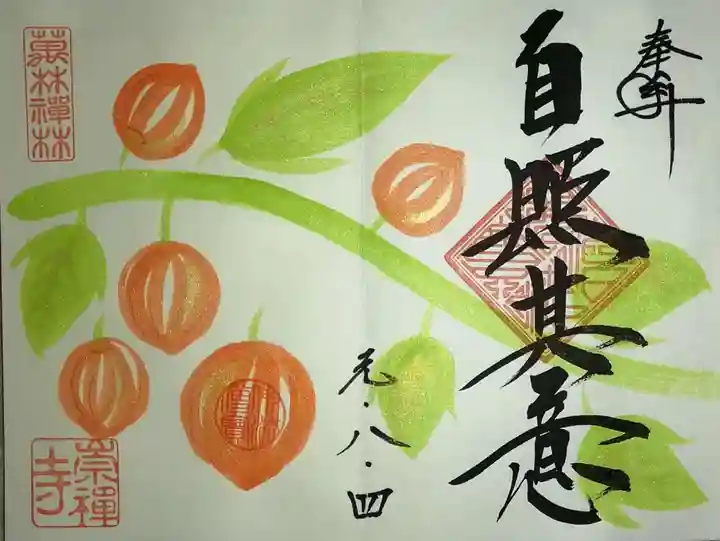 奉拝
自照其意
元・八・四
萬林禅林
崇禅寺